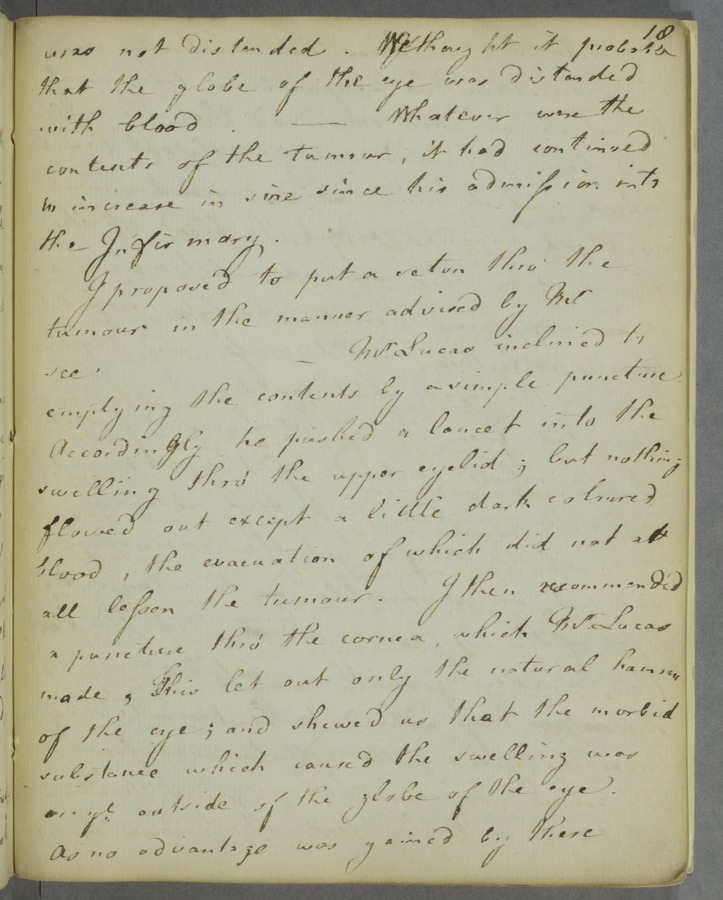 18
was not distended. We thought it probable
that the globe of the eye was distended
with blood. — Whatever were the
contents of the tumour, it had continued
to increase in size since his admission into
the Infirmary.
I proposed to put a seton thro' the
tumour in the manner advised by Mr
see — Mr. Lucas inclined to
emptying the contents by a simple puncture.
Accordingly he pushed a lancet into the
swelling thro' the upper eyelid; but nothing
flowed out except a little dark coloured
blood, the evacuation of which did not at
all lessen the tumour. I then recommended
a puncture thro' the cornea, which Mr. Lucas
made, This let out only the natural humour
of the eye; and shewed us that the morbid
substance which caused the swelling was
on ye. outside of the globe of the eye.
As no advantage was gained by these